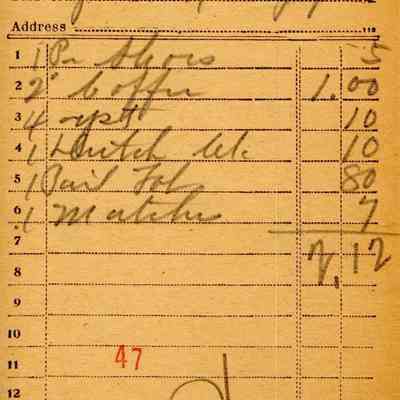 Address 118
1 1 Pr Shoes 5
2 2 Coffee 1.00
3 4 10
4 1 Dutch 10
5 1 Pail 80
6 1 Matches 7
7 2.12
8
9
10
11 47
12